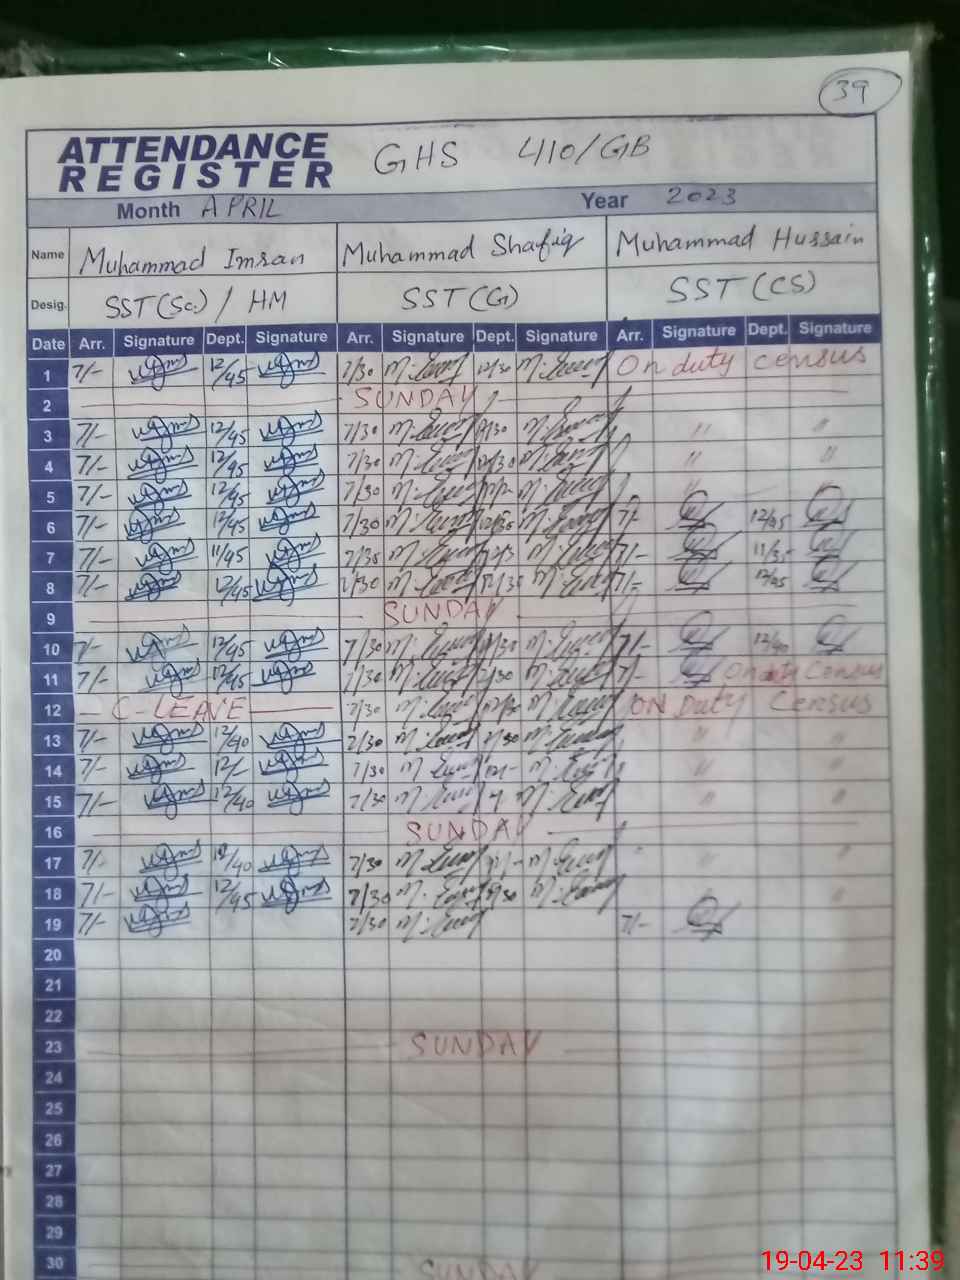 39
ATTENDANCE REGISTER GHS 410/GB
Month APRIL Year 2023
Name Muhammad Imran Muhammad Shafiq Muhammad Hussain
Desig. SST(Sc.) / HM SST(G) SST(CS)
Date Arr. Signature Dept. Signature Arr. Signature Dept. Signature Arr. Signature Dept. Signature
1 7/- 12/45 7/30 12/30 On duty census
2 SUNDAY
3 7/- 12/45 7/30 " "
4 7/- 12/45 7/30 12/30 " "
5 7/- 12/45 7/30 "
6 7/- 12/45 7/30 7/- 12/45
7 7/- 11/45 7/30 7/- 11/35
8 7/- 12/45 7/30 12/30 7/- 12/45
9 SUNDAY
10 7/- 12/45 7/30 7/- 12/40
11 7/- 12/45 7/30 7/- On duty Census
12 C-LEAVE 7/30 12/30 ON Duty Census
13 7/- 12/40 7/30 " "
14 7/- 12/- 7/30 12/- " "
15 7/- 12/40 7/30 " "
16 SUNDAY
17 7/- 12/40 7/30 " "
18 7/- 12/45 7/30 "
19 7/- 7/30 7/-
20
21
22
23 SUNDAY
24
25
26
27
28
29
30 SUNDAY
19-04-23 11:39